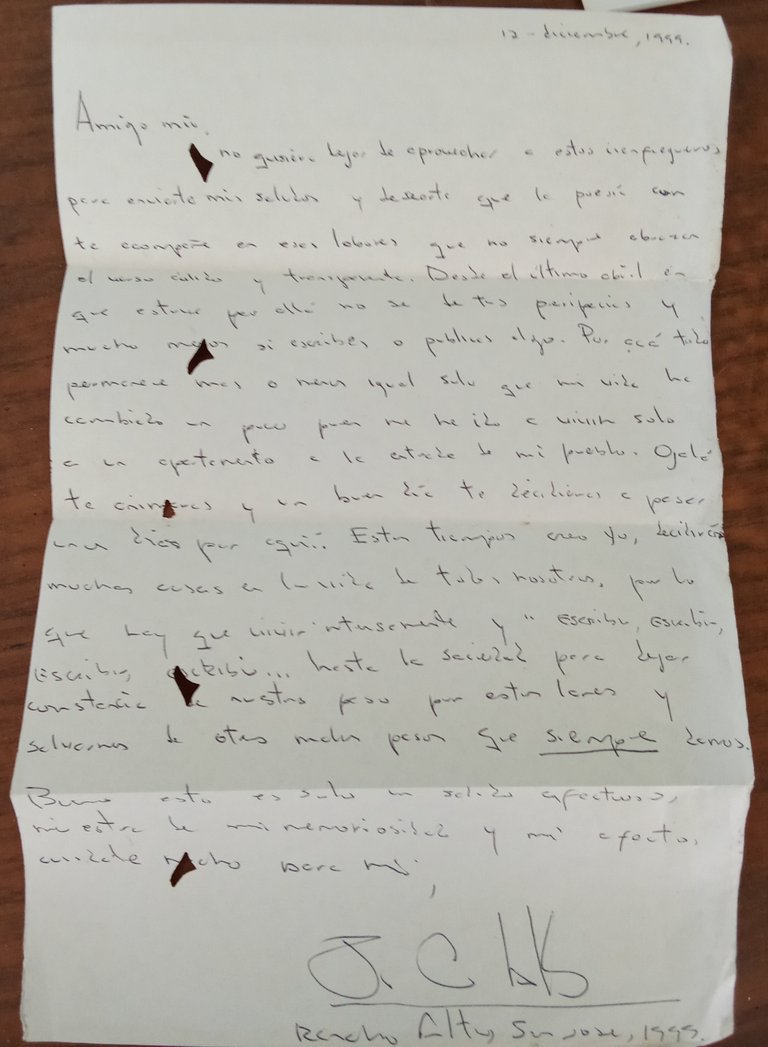 12 - diciembre, 1999.
Amigo mío,
no quisiera dejar de aprovechar a estos
para enviarte mis saludos y desearte que la poesía aun
te acompañe en esas labores que no siempre abrazan
el verso cálido y transparente. Desde el último abril en
que estuve por allá no se de tus peripecias y
mucho menos si escribes o publicas algo. Por acá todo
permanece mas o menos igual solo que mi vida ha
cambiado un poco pues me he ido a vivir solo
a un apartamento a la entrada de mi pueblo. Ojalá
te animaras y un buen día te decidieras a pasar
unos días por aquí. Estos tiempos creo yo, decidirán
muchas cosas en la vida de todos nosotros, por lo
que hay que vivir intensamente y "escribir, escribir,
escribir, escribir... hasta la saciedad para dejar
constancia de nuestro paso por estos lares y
salvarnos de otros malos pasos que siempre damos.
Bueno esto es solo un saludo afectuoso,
muestra de mi memoriosidad y mi afecto,
cuídate mucho para mí,
J. C.
Rancho Altos San José, 1999.